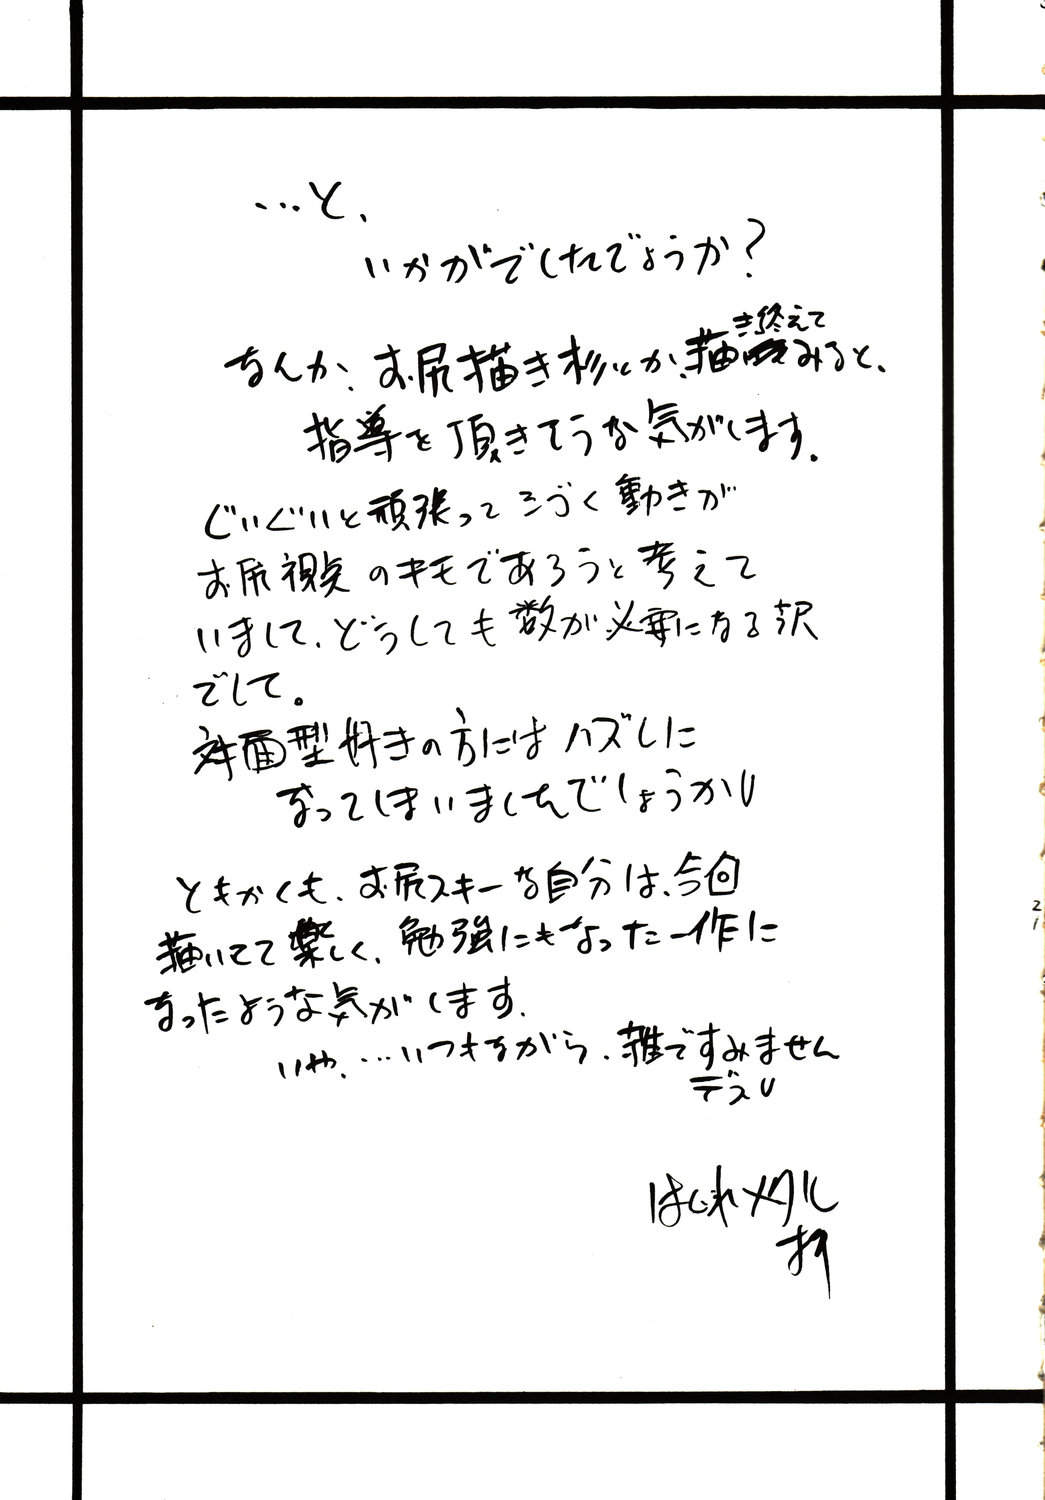 …と、
いかがでしたでしょうか？
なんか、お尻描き杉とか、描き終えてみると、
指導を頂きそうな気がします。
ぐいぐいと頑張って 動きが
お尻視点のキモであろうと考えて
いまして、どうしても数が必要になる訳
でして。
対面型好きの方にはハズしに
なってしまいましたでしょうか
ともかくも、お尻スキーな自分は、今回
描いてて楽しく、勉強にもなった一作に
なったような気がします。
いや、…いつもながら、雑ですみません
デス
はじれメタル
21